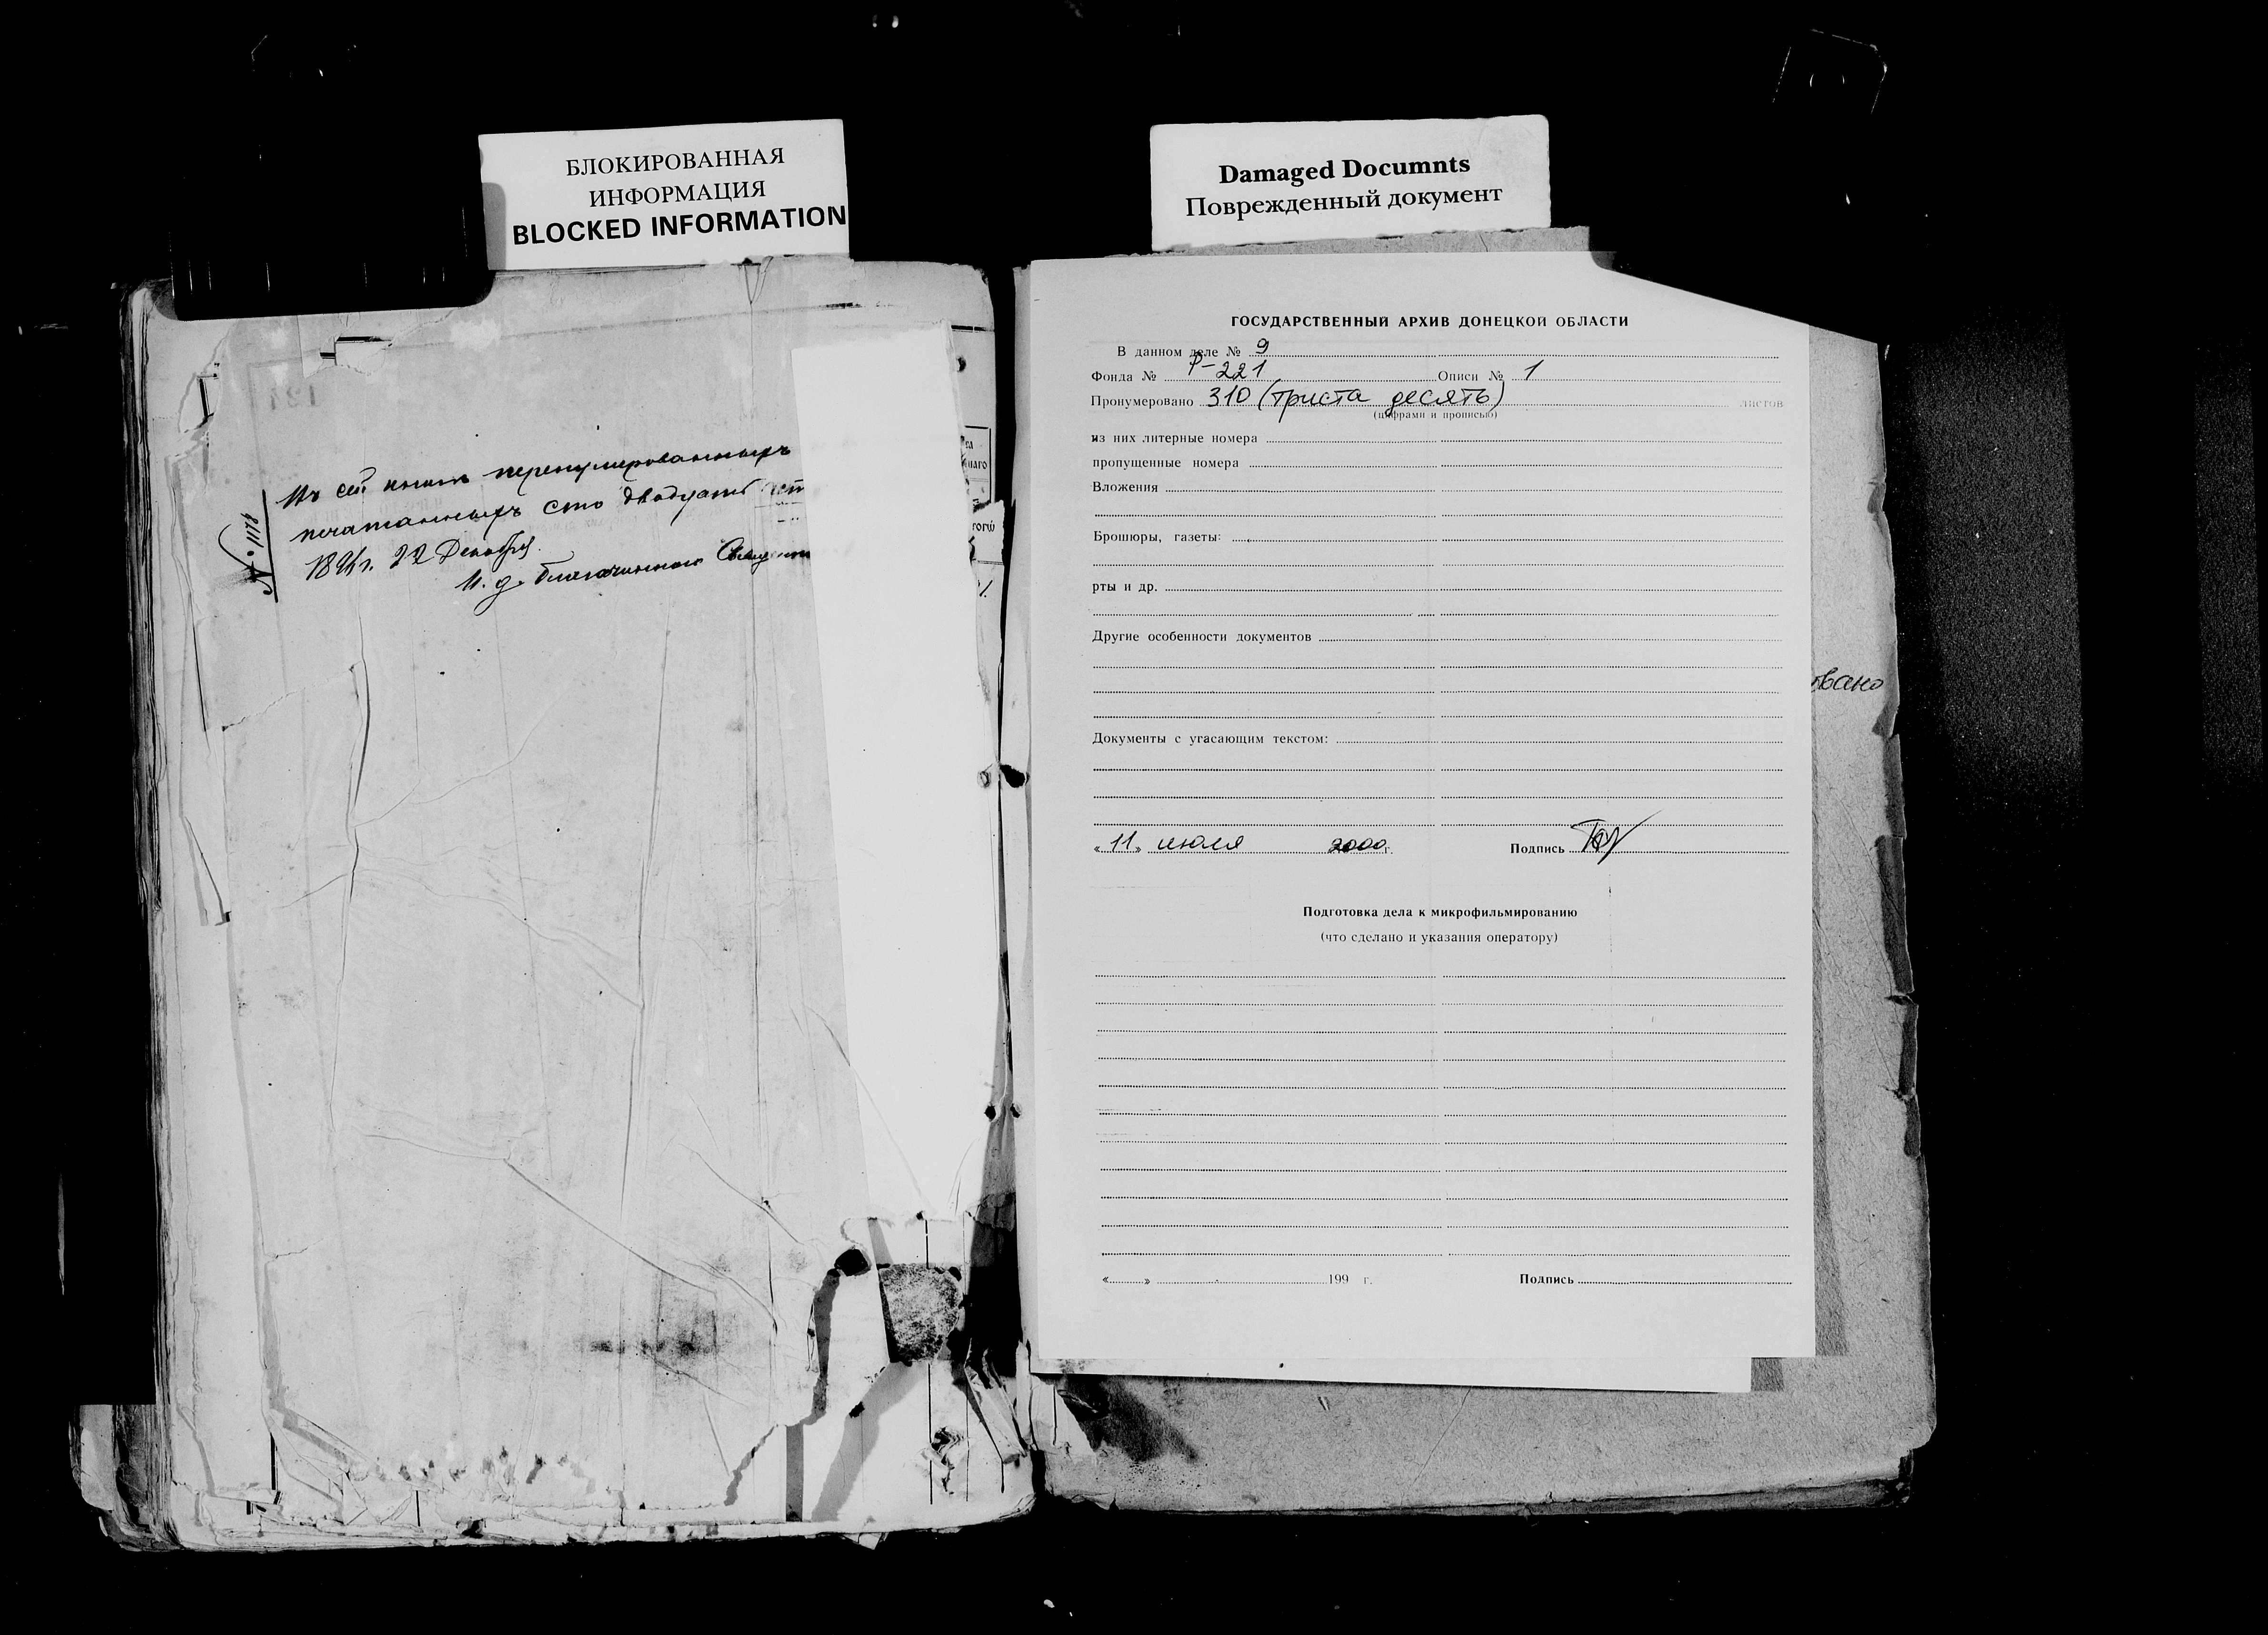 БЛОКИРОВАННАЯ
ИНФОРМАЦИЯ
BLOCKED INFORMATION
Damaged Documnts
Поврежденный документ
№ 1178
сей книги перенумерованныхъ
печатанныхъ сто двадцать
22 Декабря
И. д. благочиннаго
ГОСУДАРСТВЕННЫЙ АРХИВ ДОНЕЦКОЙ ОБЛАСТИ
В данном деле № 9
Фонда № Р-221 Описи № 1
Пронумеровано 310 (триста десять) листов
(цифрами и прописью)
из них литерные номера
пропущенные номера
Вложения
Брошюры, газеты:
рты и др.
Другие особенности документов
Документы с угасающим текстом:
«11» июля 2000 г. Подпись
Подготовка дела к микрофильмированию
(что сделано и указания оператору)
« » 199 г. Подпись
вано